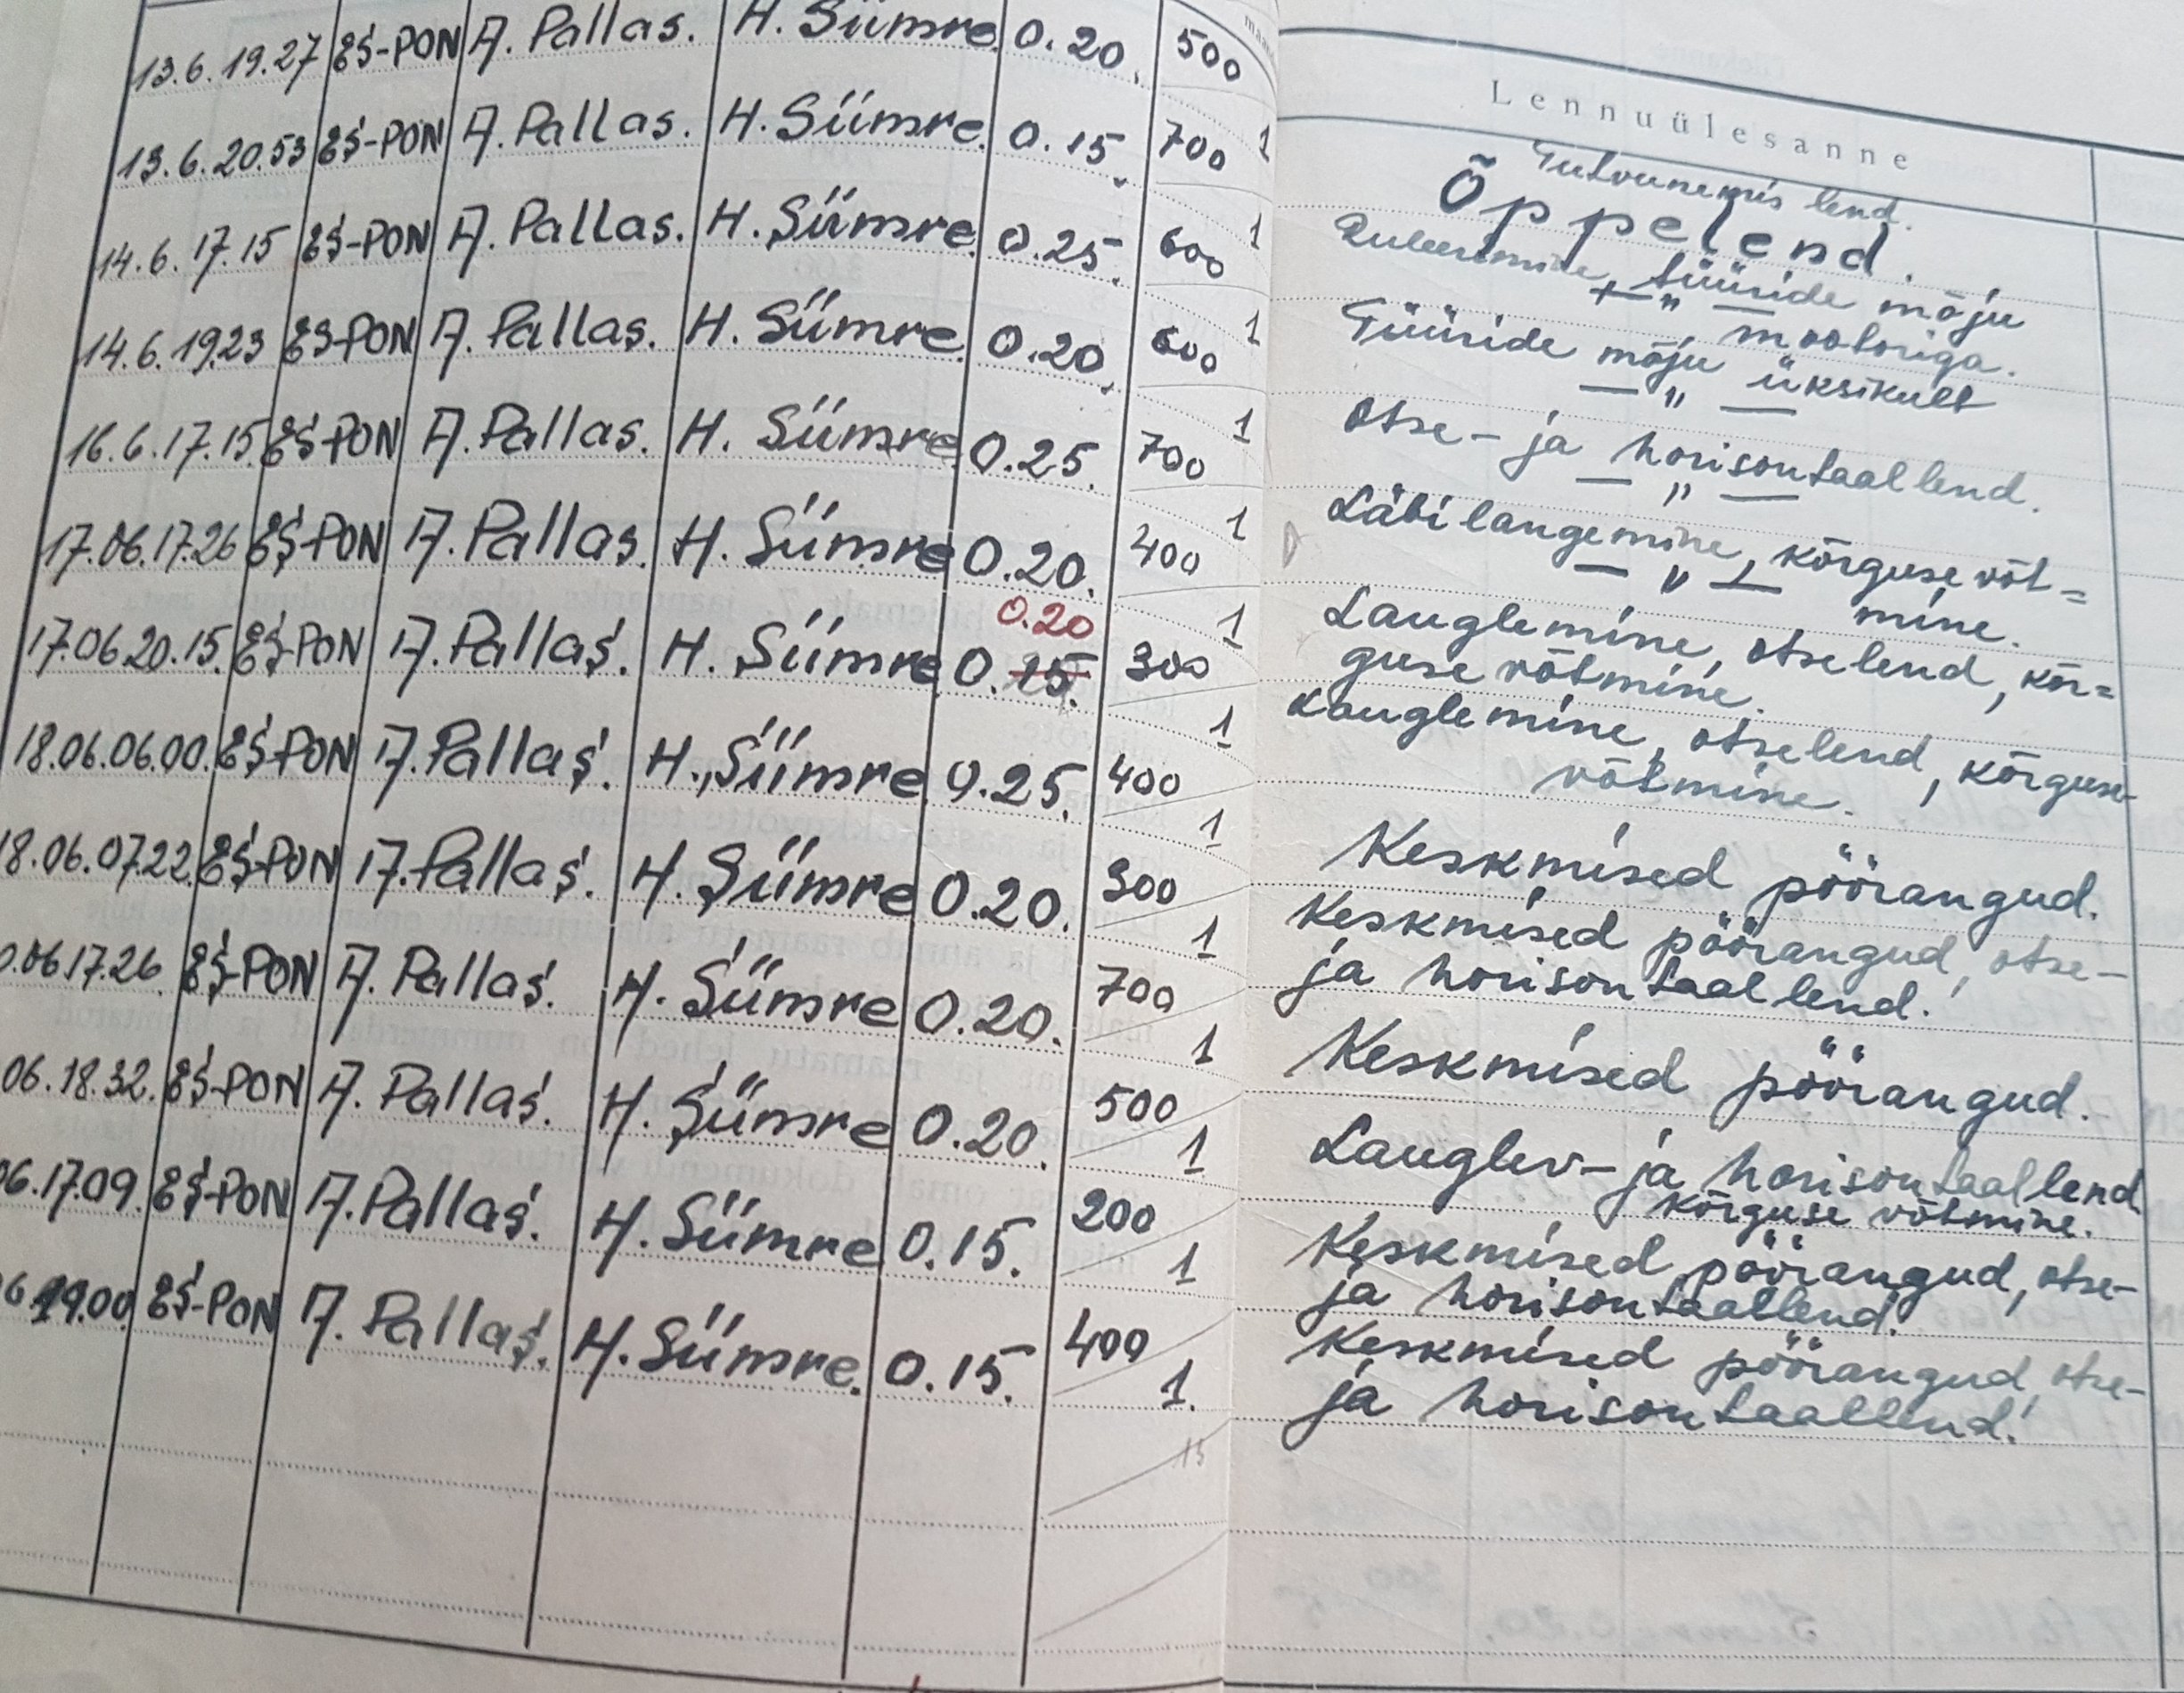 13.6.19.27 ES-PON A. Pallas. H. Siimre. 0.20. 500
1
13.6.20.53 ES-PON A. Pallas. H. Siimre. 0.15. 700
1
14.6.17.15 ES-PON A. Pallas. H. Siimre. 0.25. 600
1
14.6.19.23 ES-PON A. Pallas. H. Siimre. 0.20. 600
1
16.6.17.15. ES-PON A. Pallas. H. Siimre. 0.25. 700
1
17.06.17.26 ES-PON A. Pallas. H. Siimre 0.20. 400
0.20
1
17.06 20.15. ES-PON A. Pallas. H. Siimre 0.15. 300
1
18.06.06.00. ES-PON A. Pallas. H. Siimre. 0.25. 400
1
18.06.07.22. ES-PON A. Pallas. H. Siimre 0.20. 300
1
0.06.17.26. ES-PON A. Pallas. H. Siimre 0.20. 700
1
06.18.32. ES-PON A. Pallas. H. Siimre 0.20. 500
1
06.17.09. ES-PON A. Pallas. H. Siimre 0.15. 200
1
6 19.00. ES-PON A. Pallas. H. Siimre. 0.15. 400
1.
15
Lennuülesanne
Tutvunemis lend.
Õppelend.
Ruleerimine, tüüride mõju
+ — " — mootoriga.
Tüüride mõju üksikult
— " —
Otse- ja horisontaallend.
— " —
Läbilangemine, kõrguse võt=
— " — mine.
Lauglemine, otselend, kõr=
guse võtmine.
Lauglemine, otselend, kõrguse-
võtmine.
Keskmised pöörangud.
Keskmised pöörangud, otse-
ja horisontaallend.
Keskmised pöörangud.
Lauglev- ja horisontaallend
kõrguse võtmine.
Keskmised pöörangud, otse-
ja horisontaallend.
Keskmised pöörangud, otse-
ja horisontaallend.